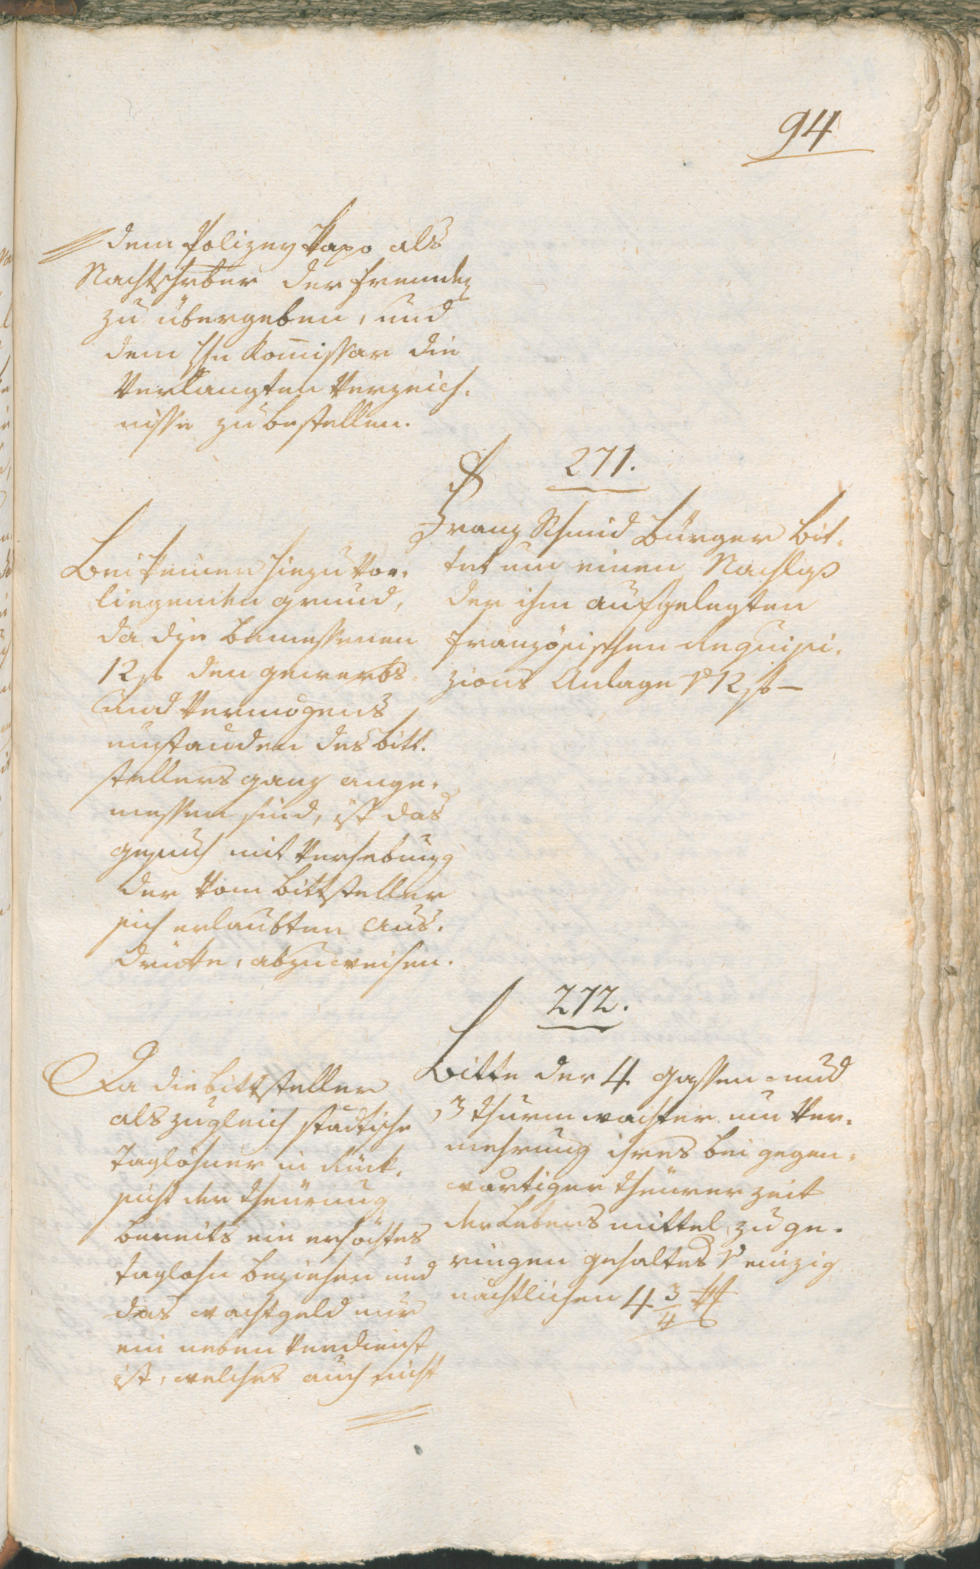 94
dem Polizey Papo als
Nachtschreber der fremden
zu übergeben, und
dem Hn Kommissar die
Verlangten Verzeich-
nisse zu bestellen.
271.
Franz Schmid Bürger bit-
tet um einen Nachlaß
der ihm aufgelegten
französischen Requisi-
zions Anlage P 12 f –
Bei keinen hiezu Vor-
liegenden grund,
da die bemessenen
12 f den gewerbs
und Vermögens
umständen des bitt-
stellers ganz ange-
messen sind, ist das
gesuch mit Verhebung
der Vom bittsteller
sich erlaubten Aus-
drücke, abzuweisen.
272.
Bitte der 4 gassen- und
3 thurmwachter um Ver-
mehrung ihres bei gegen-
wartiger theurer zeit
der Lebensmittel zu ge-
ringen gehaltes P einzig
nächtlichen 4 3/4
Da die bittsteller
als zugleich städtische
Taglöhner in Rück-
sicht der theurung
bereits ein erhöhtes
taglohn beziehen und
das wachtgeld nur
ein neben Verdienst
ist, welches auch nicht